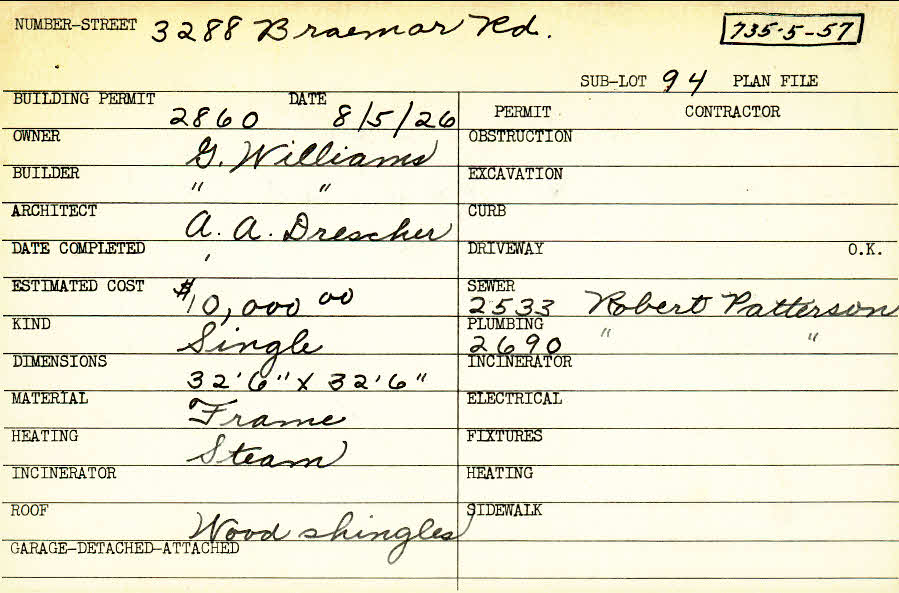 NUMBER-STREET 3288 Braemar Rd. 735-5-57
SUB-LOT 94 PLAN FILE
BUILDING PERMIT 2860 DATE 8/5/26 PERMIT CONTRACTOR
OWNER G. Williams OBSTRUCTION
BUILDER " " EXCAVATION
ARCHITECT A. A. Drescher CURB
DATE COMPLETED DRIVEWAY O.K.
ESTIMATED COST $10,000 00 SEWER 2533 Robert Patterson
KIND Single PLUMBING 2690 " "
DIMENSIONS 32'6" X 32'6" INCINERATOR
MATERIAL Frame ELECTRICAL
HEATING Steam FIXTURES
INCINERATOR HEATING
ROOF Wood shingles SIDEWALK
GARAGE-DETACHED-ATTACHED